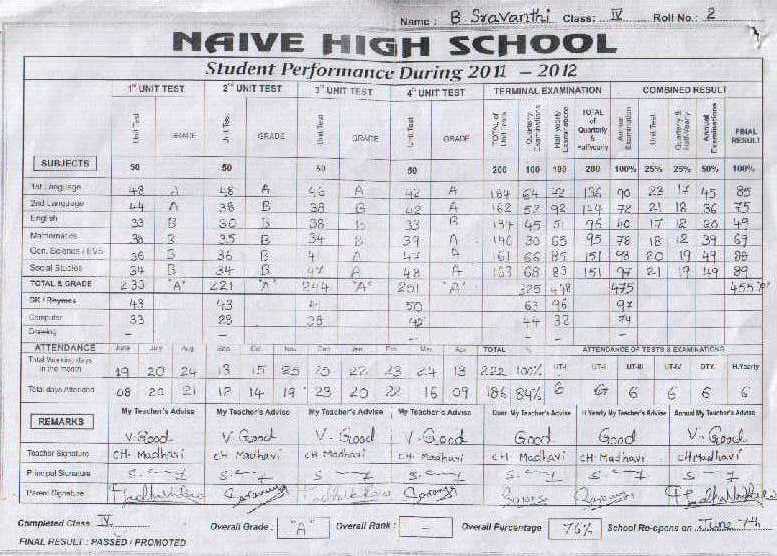 Name : B. Sravanthi Class: IV Roll No.: 2
NAIVE HIGH SCHOOL
Student Performance During 2011 – 2012
1st UNIT TEST 2nd UNIT TEST 3rd UNIT TEST 4th UNIT TEST TERMINAL EXAMINATION COMBINED RESULT
SUBJECTS Unit Test GRADE Unit Test GRADE Unit Test GRADE Unit Test GRADE TOTAL of Unit Tests Quarterly Examinations Half Yearly Examinations TOTAL of Quarterly & Halfyearly Annual Examination Unit Test Quarterly & Half-Yearly Annual Examinations FINAL RESULT
50 50 50 50 200 100 100 200 100% 25% 25% 50% 100%
1st Language 48 A 48 A 46 A 42 A 184 64 72 136 90 23 17 45 85
2nd Language 44 A 38 B 38 B 42 A 162 52 92 78 21 18 36 75
English 33 B 30 B 38 B 33 B 134 45 51 96 40 17 12 20 49
Mathematics 38 B 35 B 34 B 39 A 146 30 65 95 78 18 12 39 69
Gen. Science / EVS 36 B 36 B A 47 A 161 66 85 151 98 20 19 49 88
Social Studies 34 B 34 B 47 A 48 A 163 68 83 151 97 21 19 49 89
TOTAL & GRADE 233 "A" 221 "A" 244 "A" 251 "A" 325 475 455 "A"
GK / Rhymes 43 43 50 63 96 97
Computer 33 28 44 32 74
Drawing – – – –
ATTENDANCE June July Aug Sep Oct Nov Dec Jan Feb Mar Apr TOTAL % ATTENDANCE OF TESTS & EXAMINATIONS
Total Working days in the month 19 20 24 18 15 25 22 23 24 13 222 100% UT-I UT-II UT-III UT-IV QTY. H.Yearly
Total days Attend 08 20 21 12 14 19 23 20 22 16 09 186 84% 6 6 6 6 6 6
REMARKS My Teacher's Advise My Teacher's Advise My Teacher's Advise My Teacher's Advise My Teacher's Advise H.Yearly My Teacher's Advise Annual My Teacher's Advise
V. Good V. Good V. Good V. Good Good Good V. Good
Teacher Signature CH. Madhavi CH Madhavi CH. Madhavi CH. Madhavi CH Madhavi CH Madhavi CH Madhavi
Principal Signature
Parent Signature
Completed Class IV Overall Grade : "A" Overall Rank : – Overall Percentage 76% School Re-opens on June 7th
FINAL RESULT : PASSED / PROMOTED